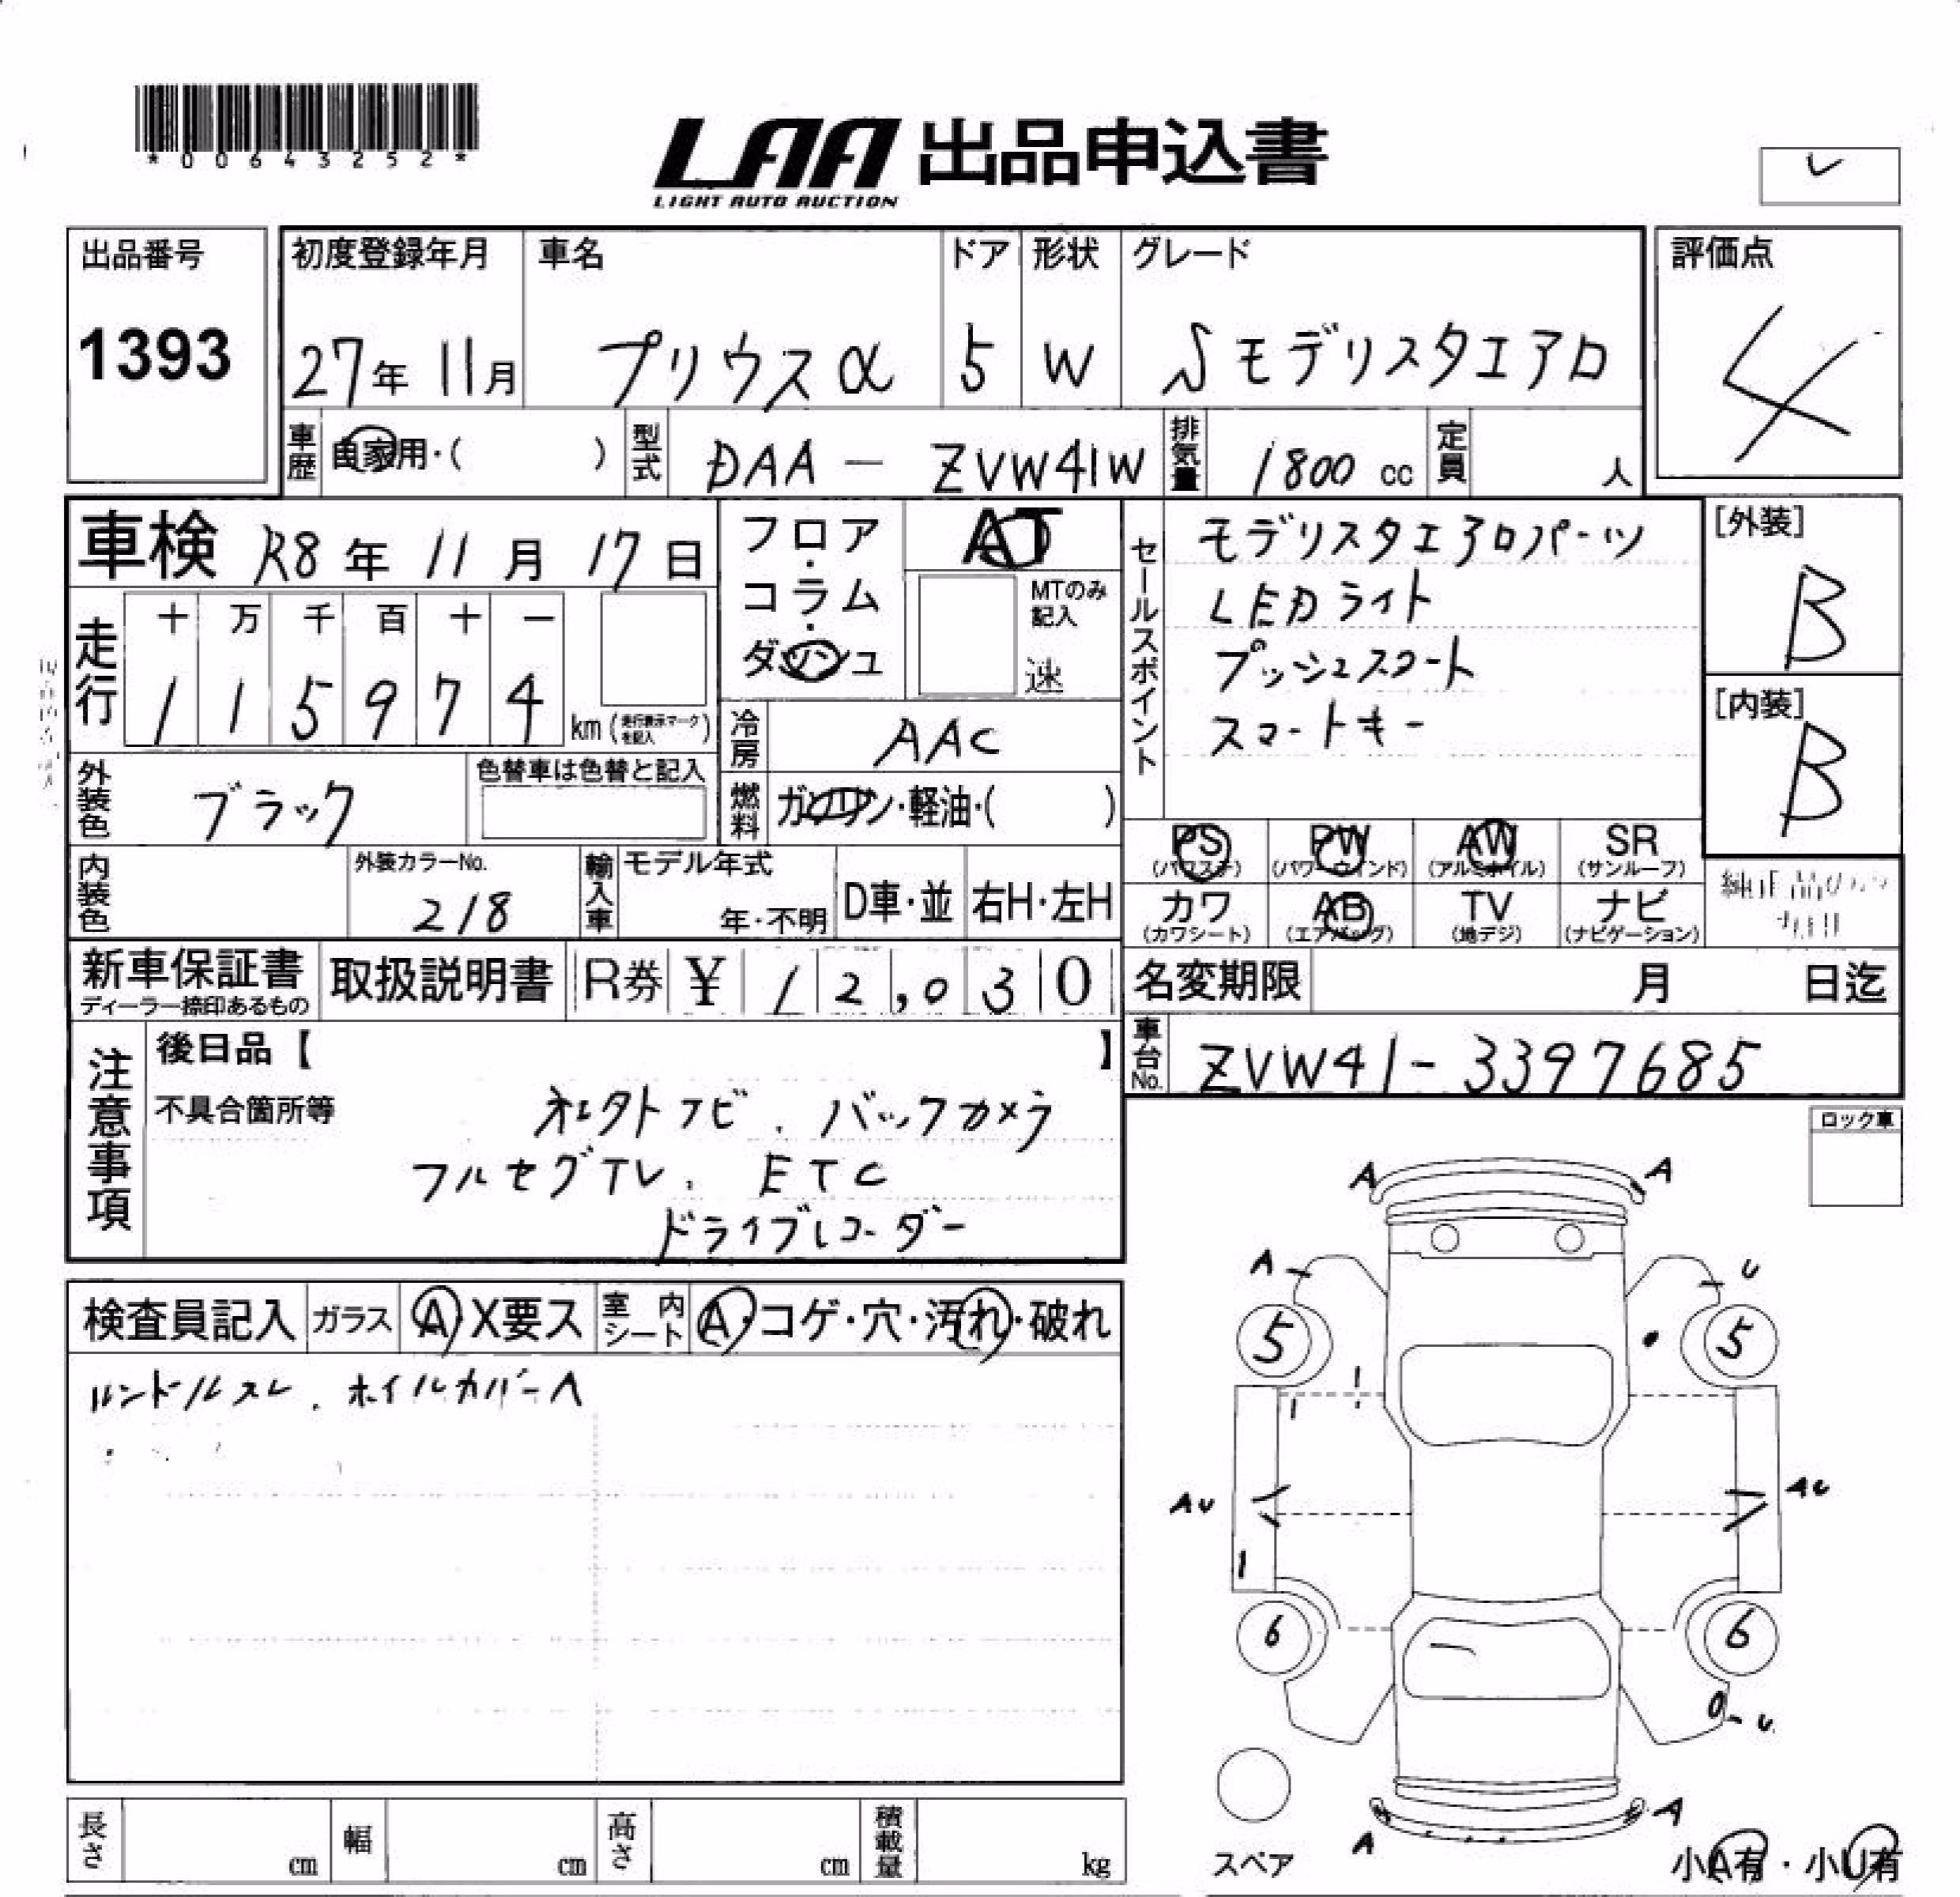 *00643252*
LAA 出品申込書
LIGHT AUTO AUCTION
出品番号
1393
初度登録年月 車名 ドア 形状 グレード 評価点
27年 11月 プリウスα 5 W Sモデリスタエアロ 4
車歴 自家用・( ) 型式 DAA - ZVW41W 排気量 1800 cc 定員 人
車検 R8年 11月 17日
フロア・コラム・ダッシュ
AT
MTのみ記入
速
セールスポイント
モデリスタエアロパーツ
LEDライト
プッシュスタート
スマートキー
[外装]
B
[内装]
B
走行 十 万 千 百 十 一
1 1 5 9 7 4 km (走行表示マークを記入)
冷房 AAC
外装色 ブラック 色替車は色替と記入
燃料 ガソリン・軽油・( )
PS (パワステ) PW (パワーウインド) AW (アルミホイル) SR (サンルーフ)
カワ (カワシート) AB (エアバッグ) TV (地デジ) ナビ (ナビゲーション)
内装色 外装カラーNo. 218 輸入車 モデル年式 年・不明 D車・並 右H・左H
新車保証書 ディーラー捺印あるもの 取扱説明書 R券 ¥ 12,030
名変期限 月 日迄
車台No. ZVW41-3397685
注意事項
後日品【 】
不具合箇所等
バックカメラ
フルセグTV. ETC
ドライブレコーダー
ロック車
検査員記入 ガラス A X要ス 室内シート A・コゲ・穴・汚れ・破れ
ホイルカバーA
A A
A U
5 5
AU AU
6 6
U
A
A
スペア
小A有・小U有
長さ cm 幅 cm 高さ cm 積載量 kg